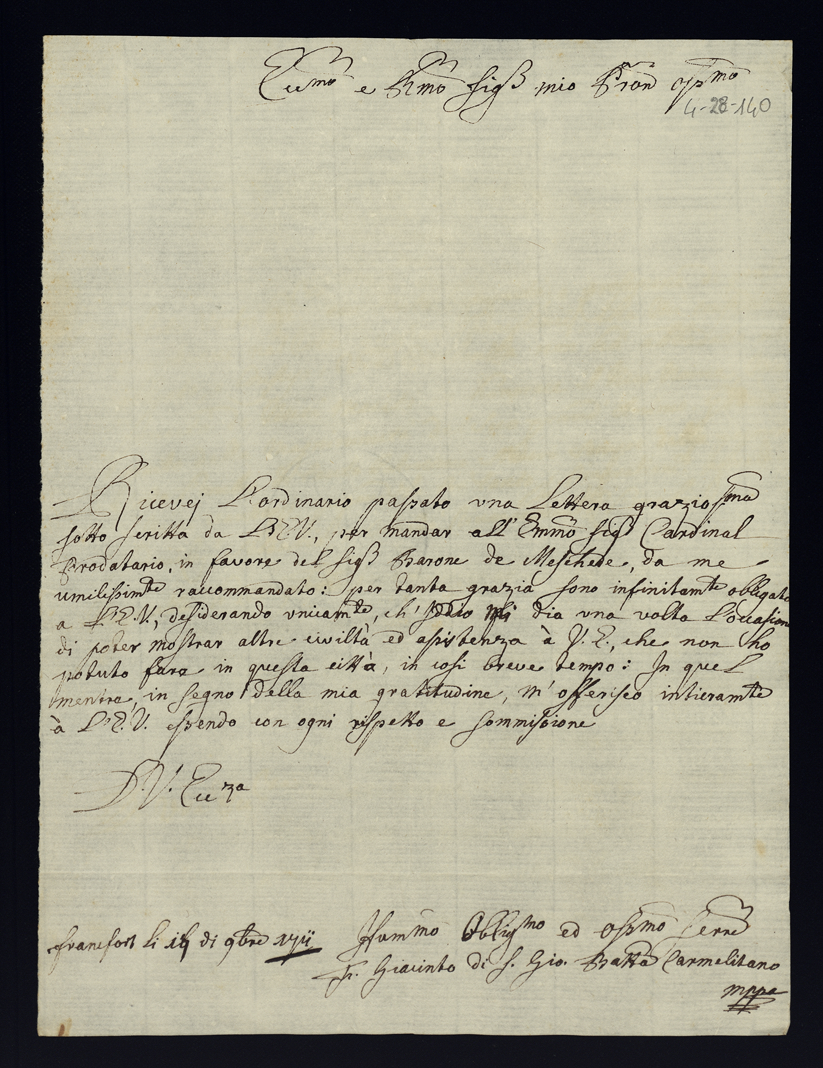 Eccmo e Rmo Sigr mio Pron ossmo
4-28-140
Ricevej L'ordinario passato vna Lettera graziosma
sotto scritta da L'E.V., per mandar all' Emmo Sigr Cardinal
Prodatario, in favore del Sigr Barone de Meschede, da me
umilissimte raccommandato: per tanta grazia sono infinitamte obligato
a L'E.V., desiderando vnicamte, ch' Iddio mi dia vna volta L'occasion
di poter mostrar altre civiltà ed assistenza à V.E., che non ho
potuto fara in questa città, in cosi breve tempo: In quel
mentre, in segno della mia gratitudine, m'offerisco intieramte
à L'E.V. essendo con ogni rispetto e sommissione
D.V. Eccza
Francfort li di 9bre 1711
Hummo Obligmo ed ossmo Serre
F. Giacinto di S. Gio. Batta Carmelitano
mppa